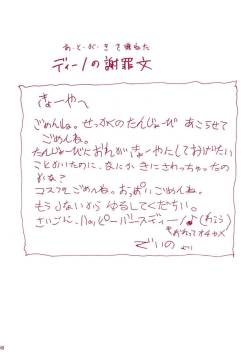 あ・と・が・き を兼ねた
ディーノの謝罪文
きょーやへ
ごめんね。せっかくのたんじょーび おこらせて
ごめんね。
たんじょーびにおれがきょーやにしてあげたい
ことがいために、なにか きにさわっちゃったの
かな?
コスプレごめんね。おっぱいごめんね。
もうしないから ゆるしてください。
さいごに、ハッピーバースディー♪(わらう)
でぃの より